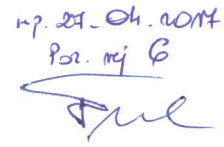 wp. 27-04.2017
Poz. rej 6